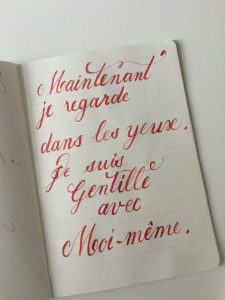 Maintenant
je regarde
dans les yeux.
Je suis
Gentille
avec
Moi-même.